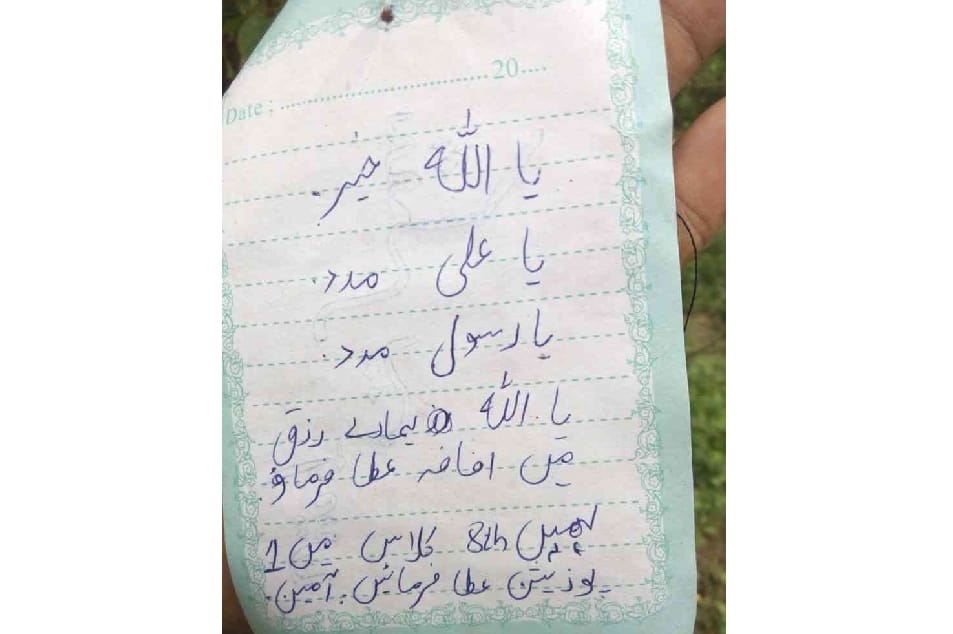 Date : ........................................ 20....
یا اللہ خیر.
یا علی مدد.
یا رسول مدد.
یا اللہ ہمارے رزق
میں اضافہ عطا فرماؤ.
ہمیں 8th کلاس میں 1
پوزیشن عطا فرمائیں. آمین.